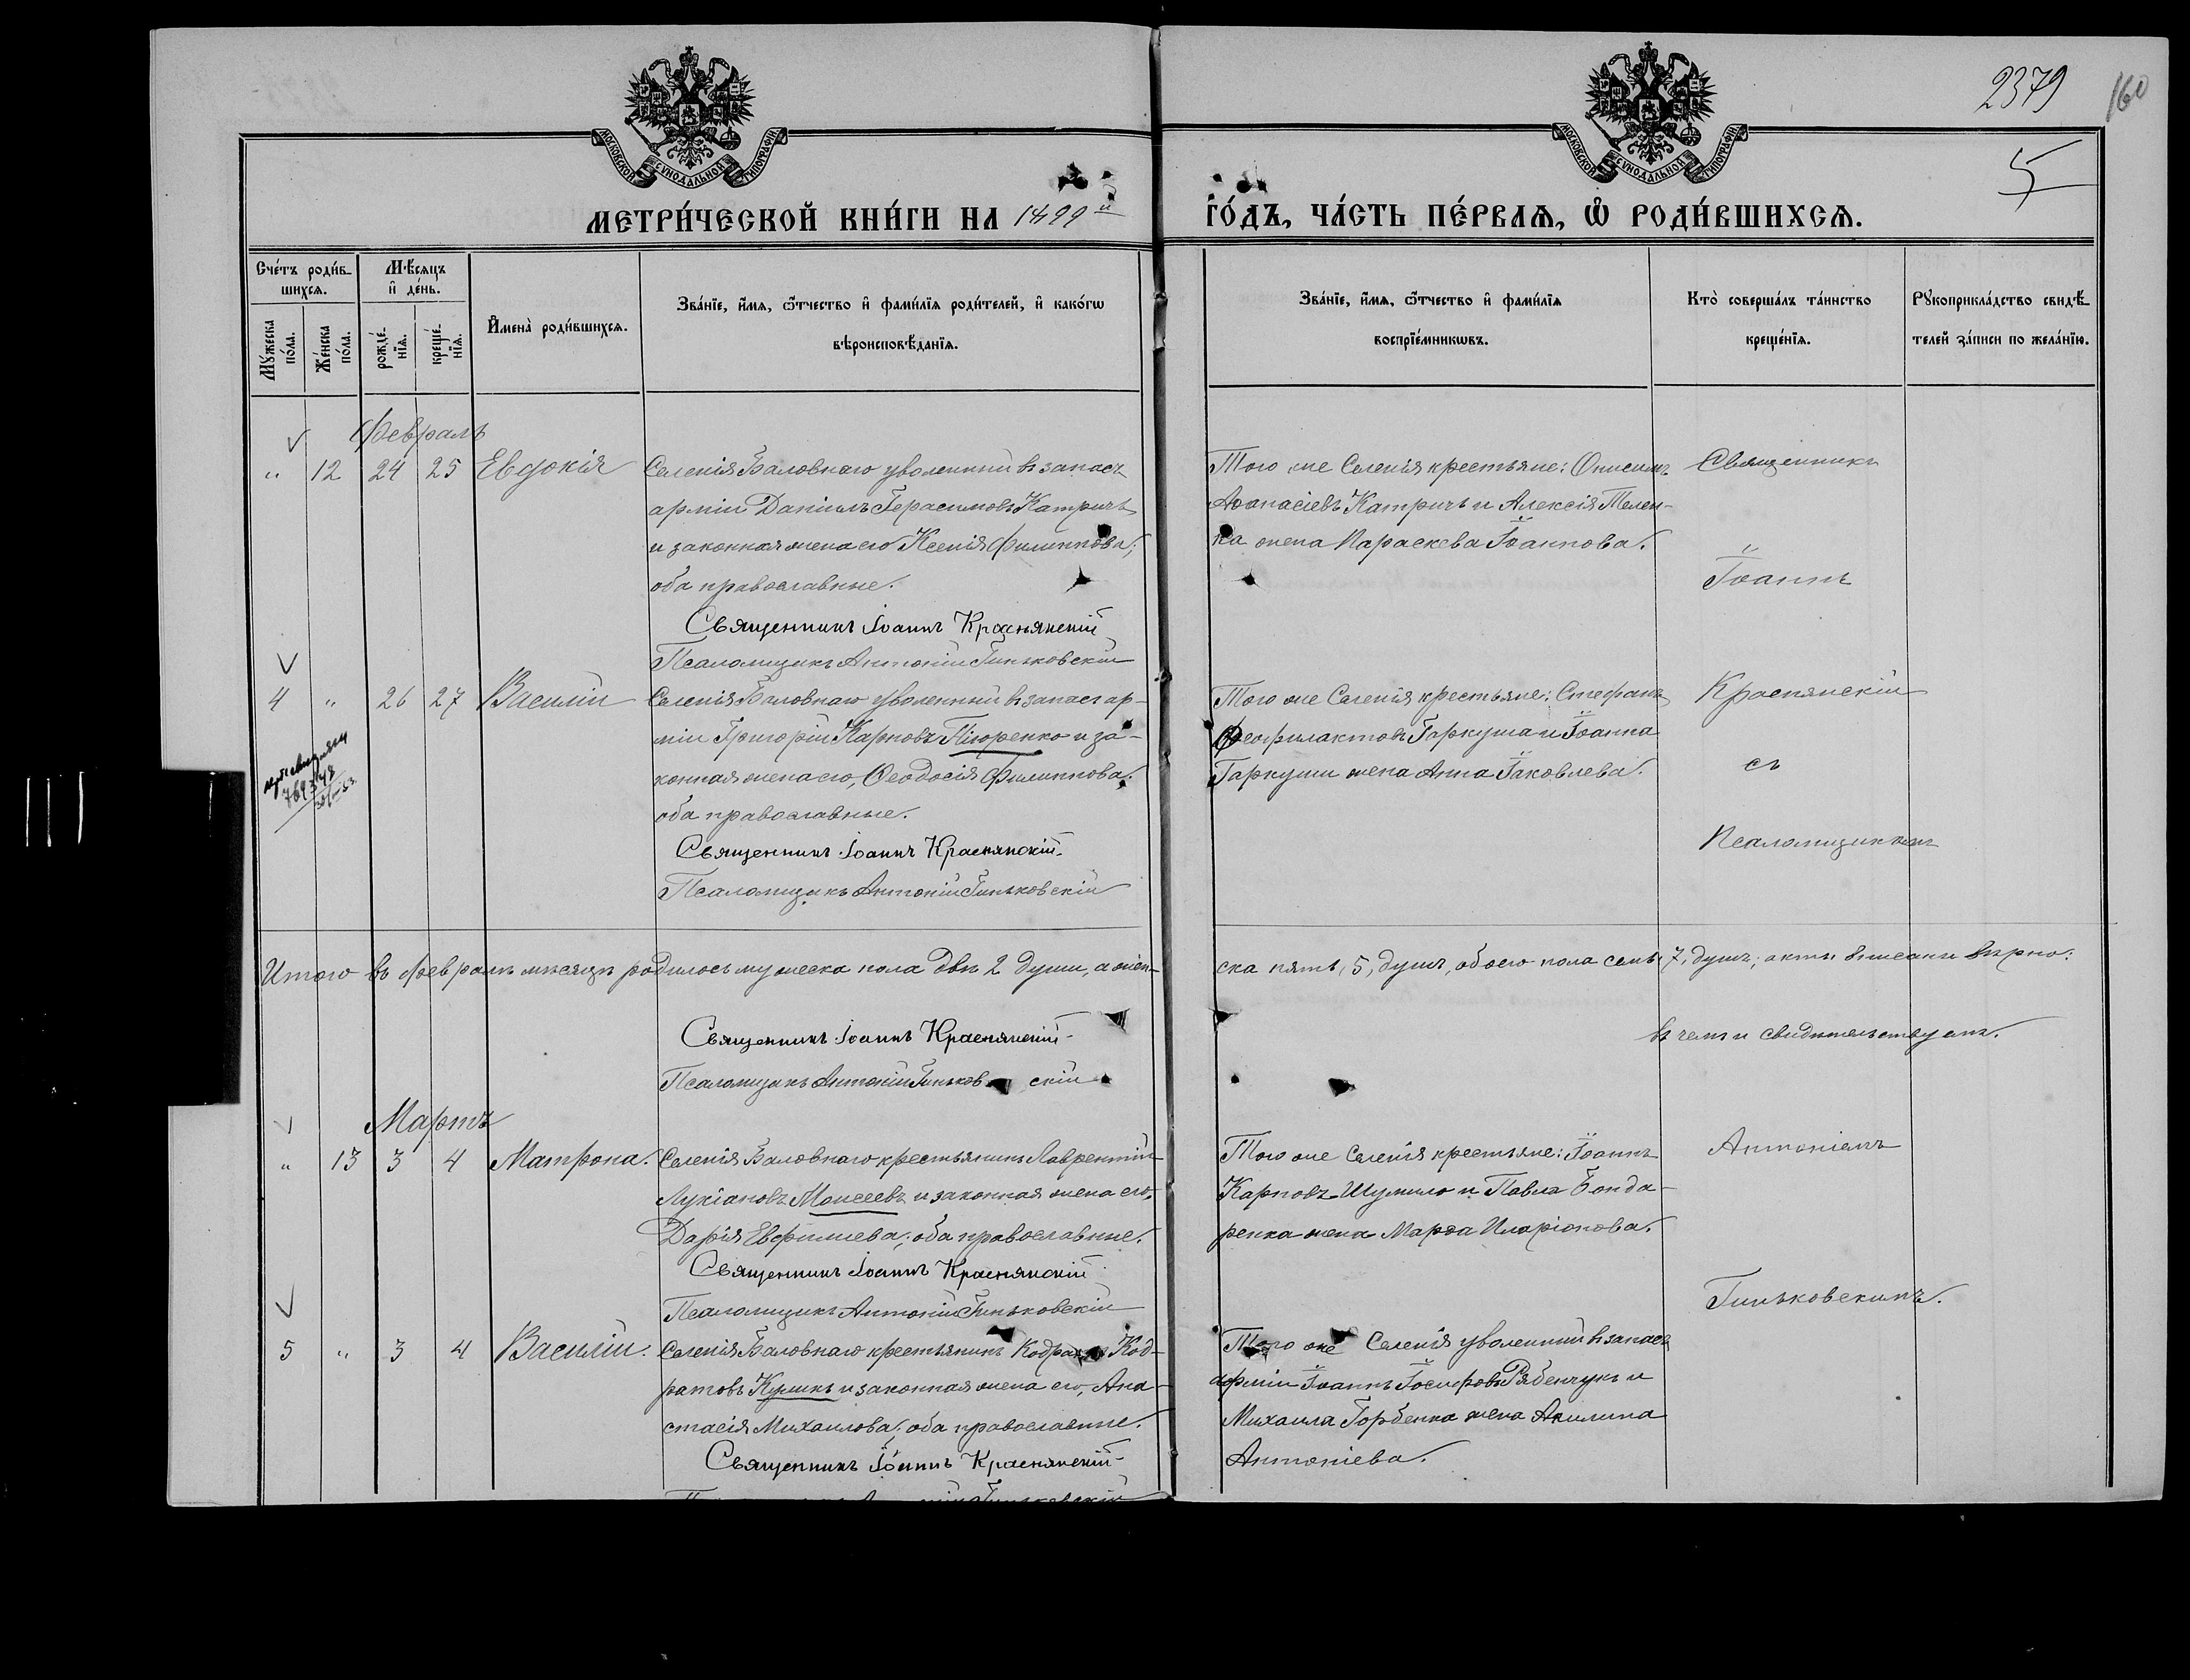 2379
160
5
МОСКОВСКОЙ СѴНОДАЛЬНОЙ ТИПОГРАФІИ
МОСКОВСКОЙ СѴНОДАЛЬНОЙ ТИПОГРАФІИ
МЕТРИ́ЧЕСКОЙ КНИ́ГИ НА 1899й ГО́ДЪ, ЧА́СТЬ ПЕ́РВАѦ, Ѡ҆ РОДИ́ВШИХСѦ.
Сче́тъ роди́в-
шихсѧ.
Мѣ́сѧцъ
и҆ де́нь.
Мꙋ́жеска
по́ла.
Же́нска
по́ла.
рожде́-
нїѧ.
креще́-
нїѧ.
И҆мена̀ роди́вшихсѧ.
Зва́нїе, и҆́мѧ, ѻ҆́тчество и҆ фами́лїѧ роди́телей, и҆ како́гѡ
вѣроисповѣ́данїѧ.
Зва́нїе, и҆́мѧ, ѻ҆́тчество и҆ фами́лїѧ
воспрїе́мникѡвъ.
Кто̀ соверша́лъ та́инство
креще́нїѧ.
Рꙋкоприкла́дство свидѣ́-
телей за́писи по жела́нїю.
Февраль
" 12 24 25 Евдокія
Селенія Баловнаго уволенный въ запасъ
арміи Даніилъ Герасимовъ Катричъ
и законная жена его Ксенія Филиппова;
оба православные.
Священникъ Іоаннъ Краснянскій
Псаломщикъ Антоній Гиньковскій
Того же Селенія крестьяне: Онисимъ
Аѳанасіевъ Катричъ и Алексія Телен-
ка жена Параскева Іоаннова.
Священникъ
Іоаннъ
4 " 26 27 Василій
Селенія Баловнаго уволенный въ запасъ ар-
міи Григорій Карповъ Пігоренко и за-
конная жена его, Ѳеодосія Филиппова;
оба православные.
Священникъ Іоаннъ Краснянскій
Псаломщикъ Антоній Гиньковскій
Того же Селенія крестьяне: Стефанъ
Феофилактовъ Гаркуша и Іоанна
Гаркуши жена Анна Іаковлева.
Краснянскій
съ
Псаломщикомъ
Итого въ февралѣ мѣсяцѣ родилось мужеска пола двѣ 2 души, а жен-
ска пять, 5, душъ, обоего пола семь 7, душъ; акты вписаны вѣрно:
въ чемъ и свидѣтельствуемъ.
Священникъ Іоаннъ Краснянскій
Псаломщикъ Антоній Гиньковскій
Мартъ
" 13 3 4 Матрона.
Селенія Баловнаго крестьянинъ Лаврентій
Лукіановъ Моисеевъ и законная жена его,
Дарія Евфимиева; оба православные.
Священникъ Іоаннъ Краснянскій
Псаломщикъ Антоній Гиньковскій
Того же Селенія крестьяне: Іоаннъ
Карповъ Шумило и Павла Бонда-
ренка жена Марѳа Иларіонова.
Антоніемъ
Гиньковскимъ.
5 " 3 4 Василій.
Селенія Баловнаго крестьянинъ Кодратъ Код-
ратовъ Куликъ и законная жена его, Ана-
стасія Михаилова; оба православные.
Священникъ Іоаннъ Краснянскій
Того же Селенія уволенный въ запасъ
арміи Іоаннъ Іосифовъ Рябенчукъ и
Михаила Горбенка жена Акилина
Антоніева.